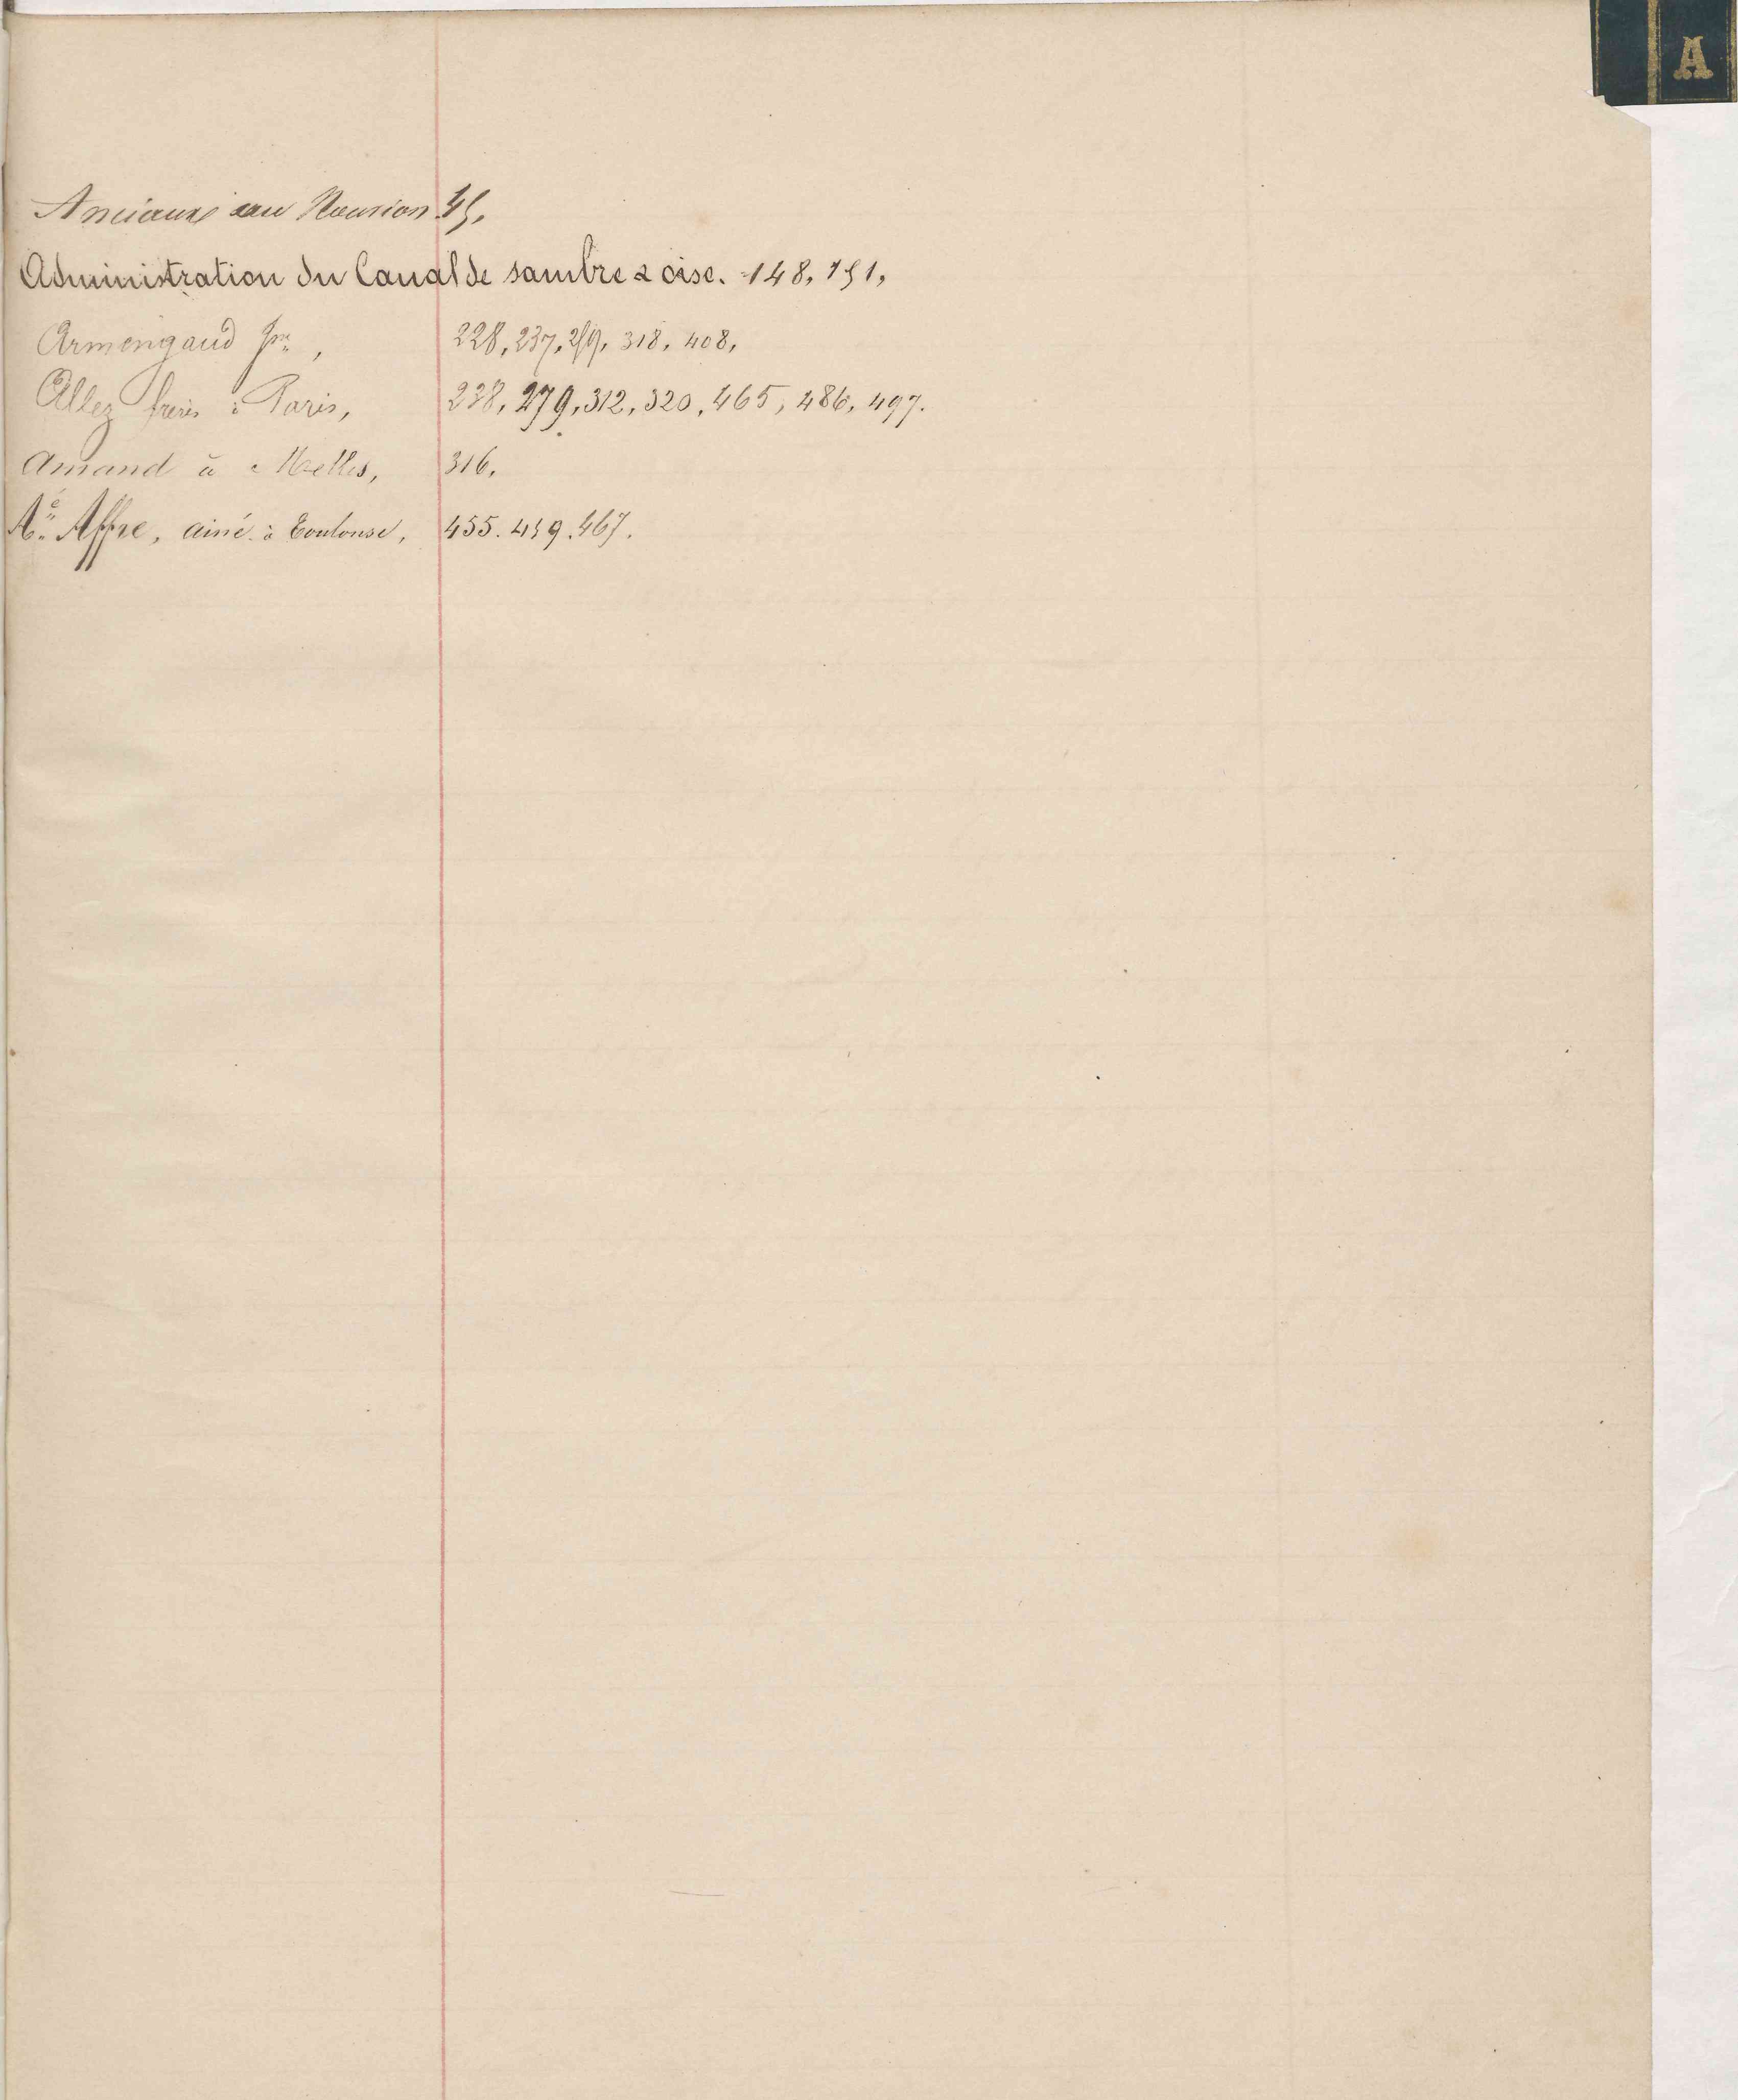 A
Anciaux au Nouvion 45,
Administration du Canal de sambre & oise. 148, 151,
Armengaud Jne, 228, 237, 259, 318, 408,
Allez frères à Paris, 238, 279, 312, 320, 465, 486, 497.
Amand à Melles, 316,
Ae Affre, ainé à Toulouse, 455. 459. 467.